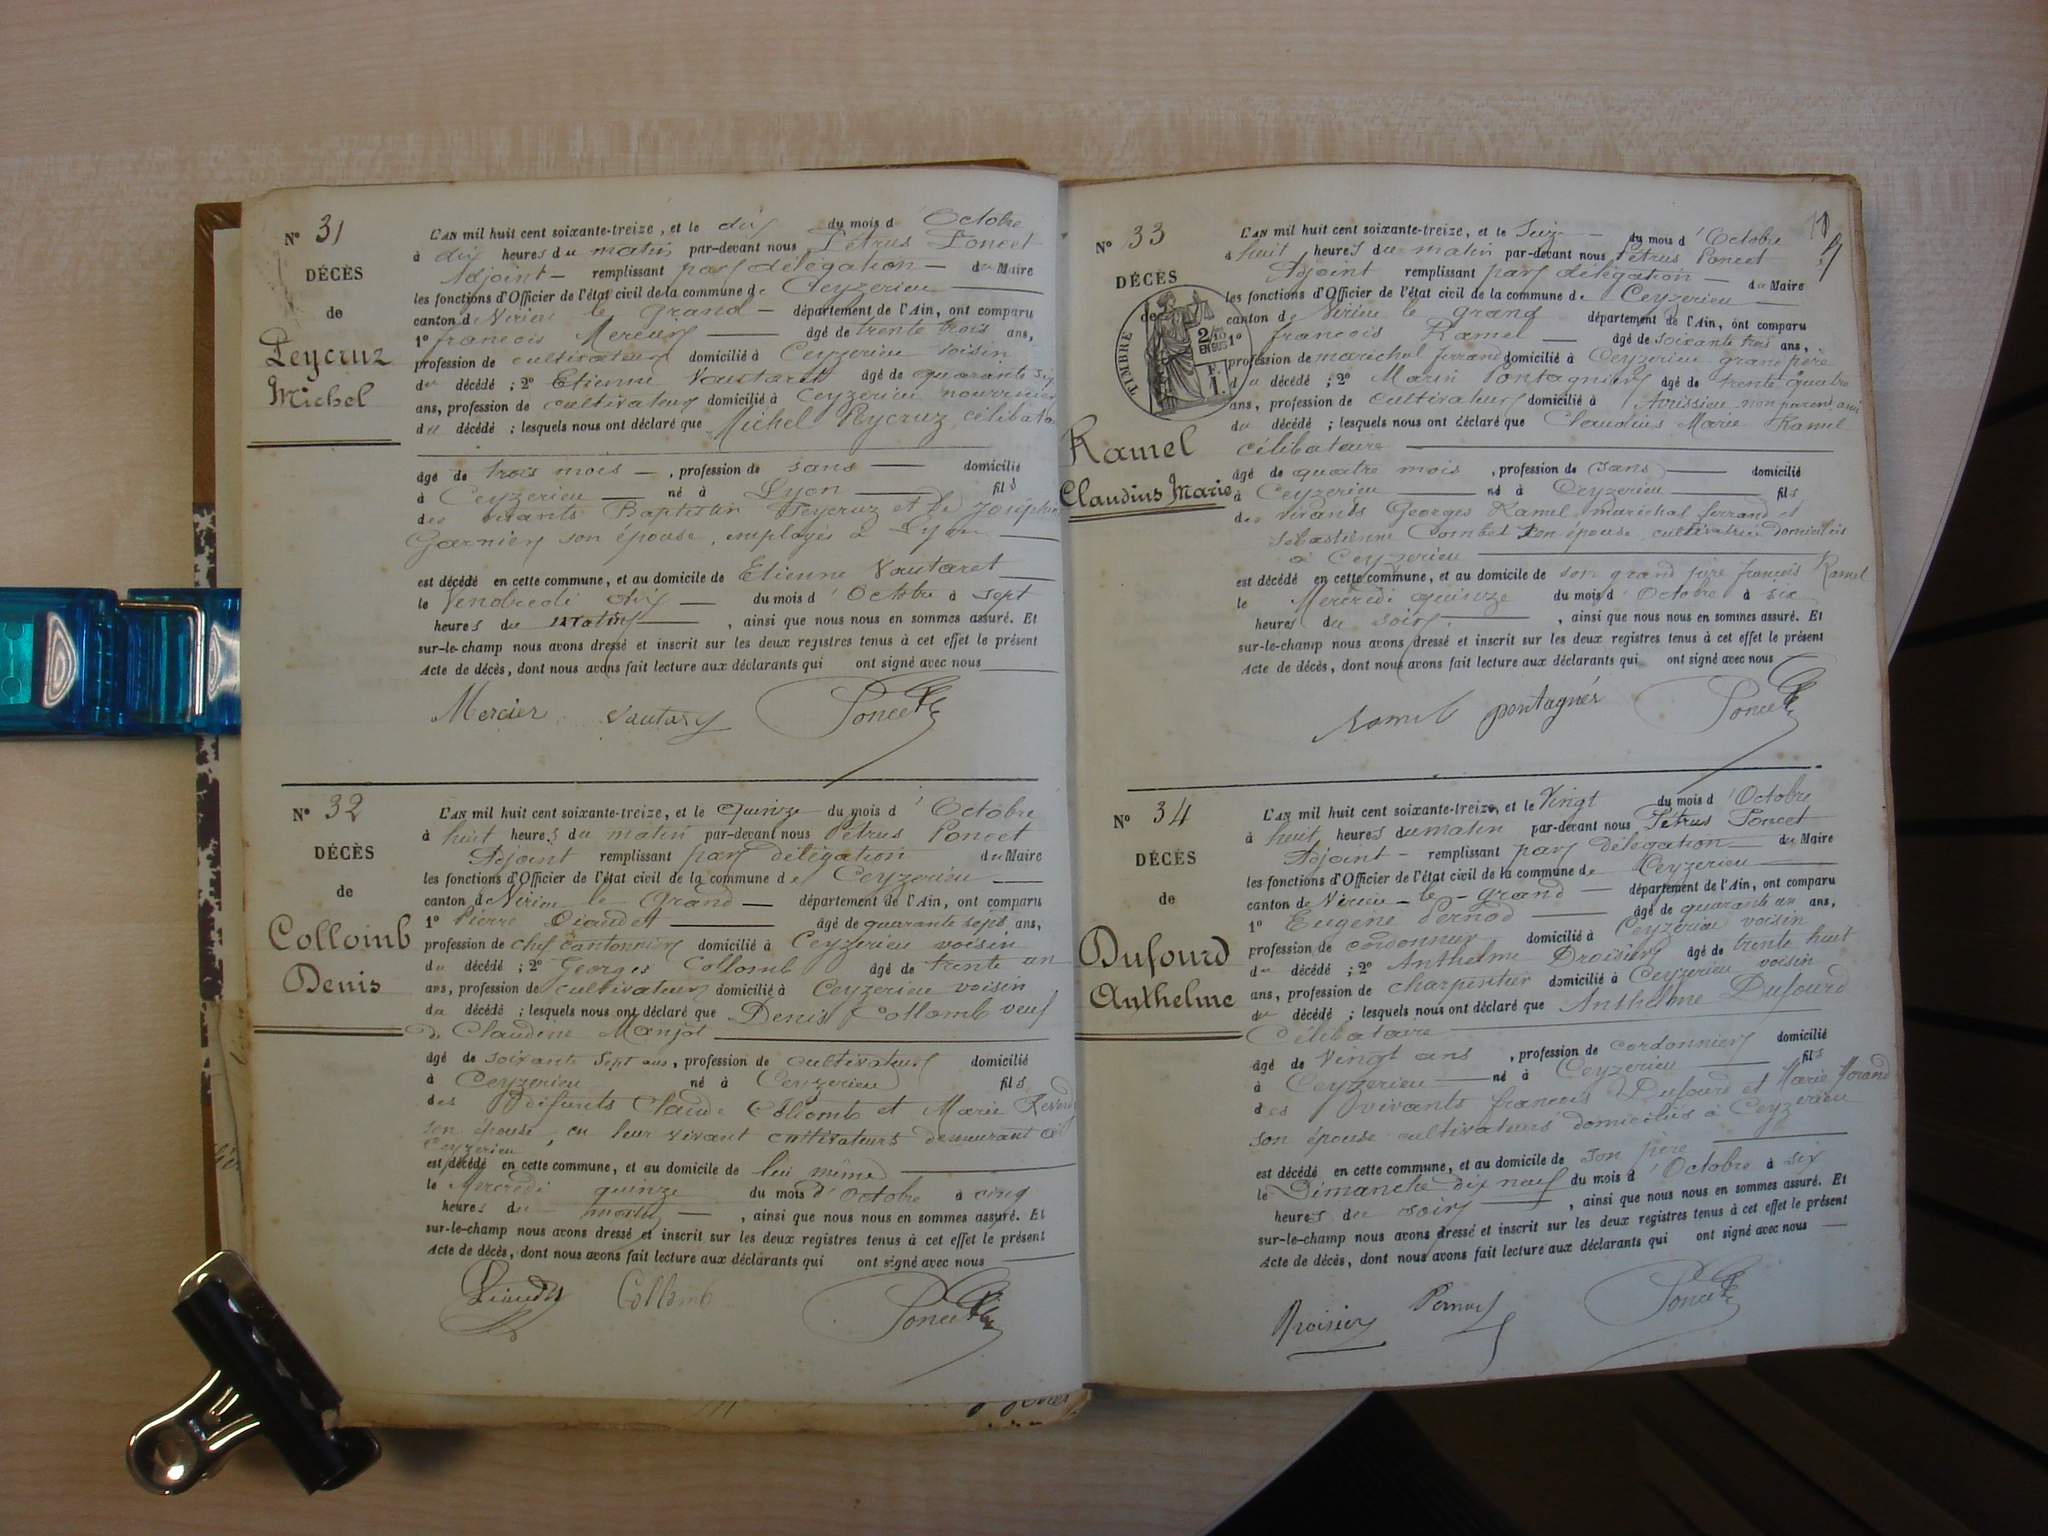 N° 31
DÉCÈS
de
Peycruz
Michel
L'AN mil huit cent soixante-treize, et le dix du mois d'Octobre
à dix heures du matin par-devant nous Pétrus Poncet
Adjoint remplissant par délégation du Maire
les fonctions d'Officier de l'état civil de la commune de Ceyzerieu
canton de Virieu le grand département de l'Ain, ont comparu
1° françois Mercier âgé de trente trois ans,
profession de cultivateur domicilié à Ceyzerieu voisin
du décédé ; 2° Etienne Vautaret âgé de quarante six
ans, profession de cultivateur domicilié à Ceyzerieu nourricier
du décédé ; lesquels nous ont déclaré que Michel Peycruz célibat
âgé de trois mois, profession de sans domicilié
à Ceyzerieu né à Lyon fils
des vivants Baptistin Peycruz et de Joséphine
Garnier son épouse, employés à Lyon
est décédé en cette commune, et au domicile de Etienne Vautaret
le Vendredi dix du mois d'Octobre à sept
heures du matin, ainsi que nous nous en sommes assuré. Et
sur-le-champ nous avons dressé et inscrit sur les deux registres tenus à cet effet le présent
Acte de décès, dont nous avons fait lecture aux déclarants qui ont signé avec nous
Mercier Poncet
N° 32
DÉCÈS
de
Collomb
Denis
L'AN mil huit cent soixante-treize, et le Quinze du mois d'Octobre
à huit heures du matin par-devant nous Pétrus Poncet
Adjoint remplissant par délégation du Maire
les fonctions d'Officier de l'état civil de la commune de Ceyzerieu
canton de Virieu le Grand département de l'Ain, ont comparu
1° Pierre âgé de quarante sept ans,
profession de chef cantonnier domicilié à Ceyzerieu voisin
du décédé ; 2° Georges Collomb âgé de trente un
ans, profession de cultivateur domicilié à Ceyzerieu voisin
du décédé ; lesquels nous ont déclaré que Denis Collomb veuf
de Claudine Monjot
âgé de soixante sept ans, profession de cultivateur domicilié
à Ceyzerieu né à Ceyzerieu fils
des défunts Claude Collomb et Marie
son épouse, en leur vivant cultivateurs demeurant à
Ceyzerieu
est décédé en cette commune, et au domicile de lui même
le Mercredi quinze du mois d'Octobre à cinq
heures du matin, ainsi que nous nous en sommes assuré. Et
sur-le-champ nous avons dressé et inscrit sur les deux registres tenus à cet effet le présent
Acte de décès, dont nous avons fait lecture aux déclarants qui ont signé avec nous
Collomb Poncet
N° 33
DÉCÈS
de
TIMBRE
2/10
EN SUS
F.
1.
Ramel
Claudius Marie
L'AN mil huit cent soixante-treize, et le Seize du mois d'Octobre
à huit heures du matin par-devant nous Pétrus Poncet
Adjoint remplissant par délégation du Maire
les fonctions d'Officier de l'état civil de la commune de Ceyzerieu
canton de Virieu le grand département de l'Ain, ont comparu
1° françois Ramel âgé de soixante trois ans,
profession de maréchal ferrand domicilié à Ceyzerieu grand père
du décédé ; 2° Marin Pontagnier âgé de trente quatre
ans, profession de cultivateur domicilié à Avrissieu non parent ami
du décédé ; lesquels nous ont déclaré que Claudius Marie Ramel
célibataire
âgé de quatre mois, profession de sans domicilié
à Ceyzerieu né à Ceyzerieu fils
des vivants Georges Ramel maréchal ferrand et
Sébastienne Combet son épouse cultivatrice domiciliés
à Ceyzerieu
est décédé en cette commune, et au domicile de son grand père françois Ramel
le Mercredi quinze du mois d'Octobre à six
heures du soir, ainsi que nous nous en sommes assuré. Et
sur-le-champ nous avons dressé et inscrit sur les deux registres tenus à cet effet le présent
Acte de décès, dont nous avons fait lecture aux déclarants qui ont signé avec nous
Ramel pontagnér Poncet
N° 34
DÉCÈS
de
Dufourd
Anthelme
L'AN mil huit cent soixante-treize, et le Vingt du mois d'Octobre
à huit heures du matin par-devant nous Pétrus Poncet
Adjoint remplissant par délégation du Maire
les fonctions d'Officier de l'état civil de la commune de Ceyzerieu
canton de Virieu-le-grand département de l'Ain, ont comparu
1° Eugène Pernod âgé de quarante un ans,
profession de cordonnier domicilié à Ceyzerieu voisin
du décédé ; 2° Anthelme Droisier âgé de trente huit
ans, profession de charpentier domicilié à Ceyzerieu voisin
du décédé ; lesquels nous ont déclaré que Anthelme Dufourd
Célibataire
âgé de vingt ans, profession de cordonnier domicilié
à Ceyzerieu né à Ceyzerieu fils
des vivants françois Dufourd et Marie Morand
son épouse cultivateurs domiciliés à Ceyzerieu
est décédé en cette commune, et au domicile de son père
le Dimanche dix neuf du mois d'Octobre à six
heures du soir, ainsi que nous nous en sommes assuré. Et
sur-le-champ nous avons dressé et inscrit sur les deux registres tenus à cet effet le présent
Acte de décès, dont nous avons fait lecture aux déclarants qui ont signé avec nous
Droisier Pernod Poncet